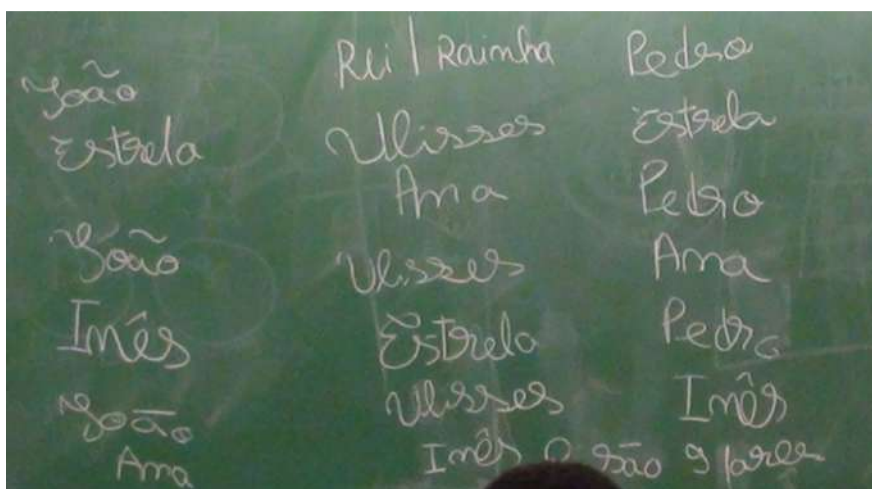 João
Estrela
João
Inês
João
Ana
Rei / Rainha
Ulisses
Ana
Ulisses
Estrela
Ulisses
Inês
Pedro
Estrela
Pedro
Ana
Pedro
Inês
são 9 pares